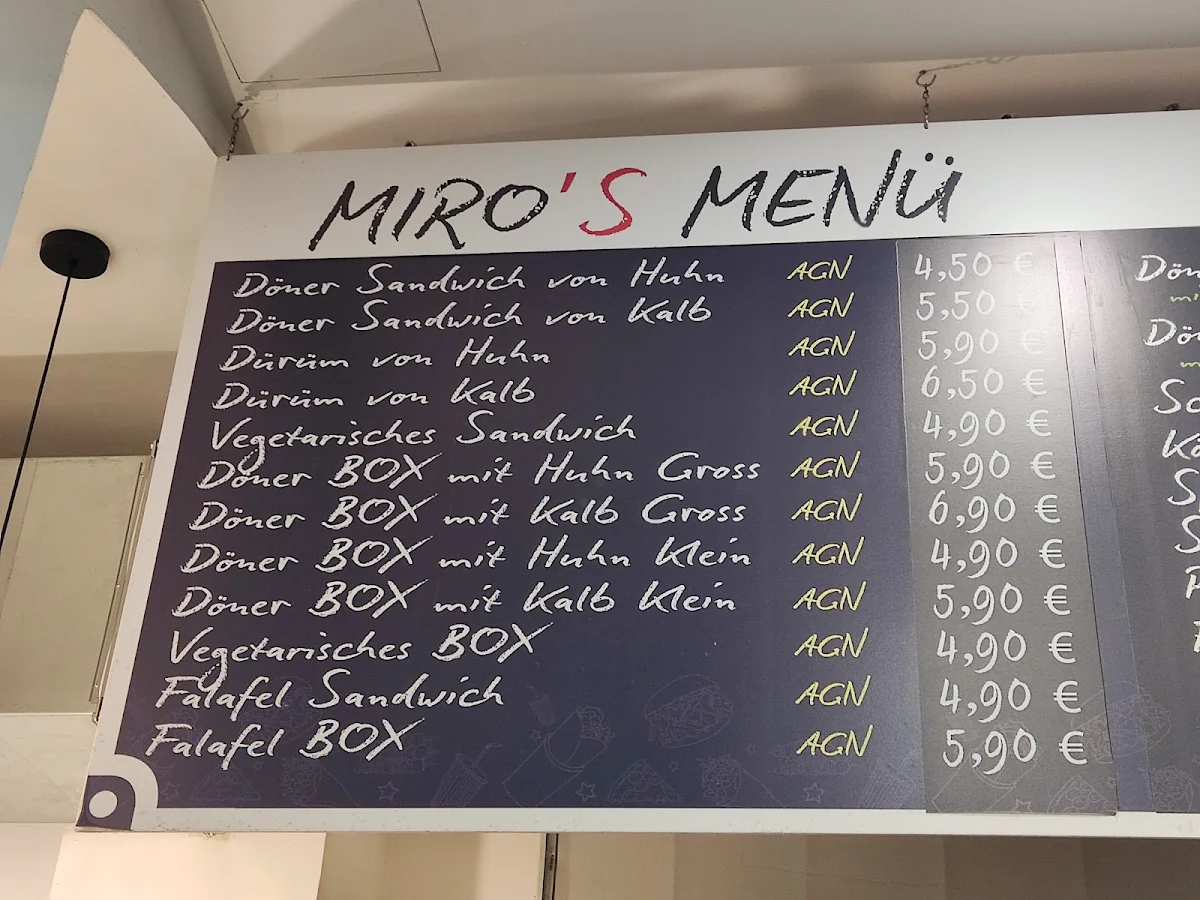 MIRO'S MENÜ
Döner Sandwich von Huhn AGN 4,50 €
Döner Sandwich von Kalb AGN 5,50 €
Dürüm von Huhn AGN 5,90 €
Dürüm von Kalb AGN 6,50 €
Vegetarisches Sandwich AGN 4,90 €
Döner BOX mit Huhn Gross AGN 5,90 €
Döner BOX mit Kalb Gross AGN 6,90 €
Döner BOX mit Huhn Klein AGN 4,90 €
Döner BOX mit Kalb Klein AGN 5,90 €
Vegetarisches BOX AGN 4,90 €
Falafel Sandwich AGN 4,90 €
Falafel BOX AGN 5,90 €